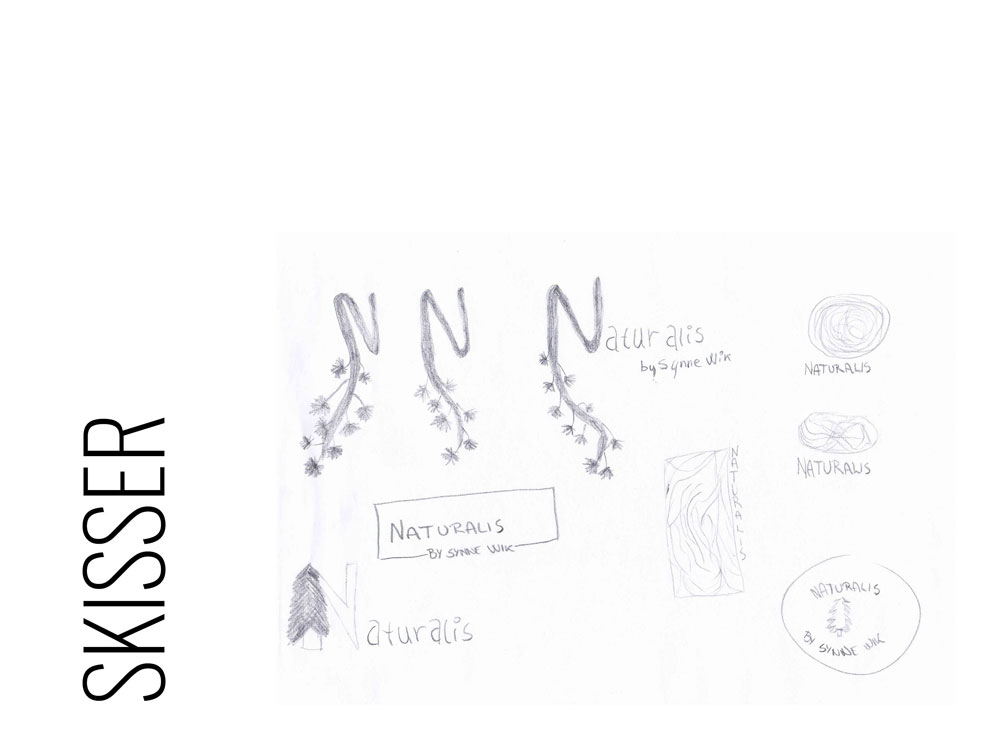 SKISSER
N
N
Naturalis
by Synne Wik
NATURALIS
NATURALIS
NATURALIS
NATURALIS
BY SYNNE WIK
Naturalis
NATURALIS
BY SYNNE WIK